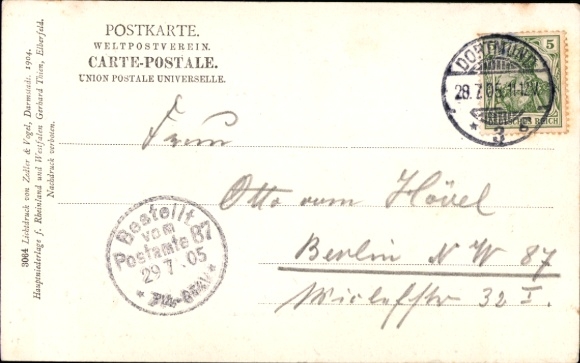 POSTKARTE.
WELTPOSTVEREIN.
CARTE-POSTALE.
UNION POSTALE UNIVERSELLE.
5
DEUTSCHES REICH
DORTMUND
28.7.05. 11-12V.
* 3 g
Frau
Otto vom Hövel
Berlin N W 87
Wiclefstr 32 I.
Bestellt
vom
Postamte 87
29 7. 05
3064 Lichtdruck von Zedler & Vogel, Darmstadt. 1904.
Hauptniederlage f. Rheinland und Westfalen Gerhard Thien, Elberfeld.
Nachdruck verboten.